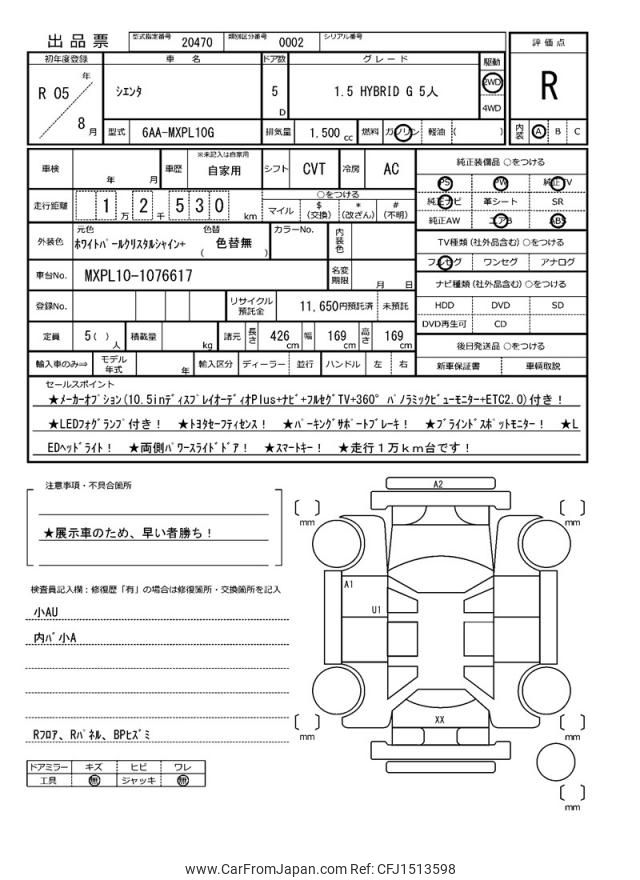 出品票 型式指定番号 20470 類別区分番号 0002 シリアル番号
評価点
R
初年度登録 車名 ドア数 グレード 駆動
R 05 年 8 月 シエンタ 5 D 1.5 HYBRID G 5人 2WD 4WD
型式 6AA-MXPL10G 排気量 1,500 cc 燃料 ガソリン 軽油 ( )
内装 A B C
車検 年 月 車歴 ※未記入は自家用 自家用 シフト CVT 冷房 AC
走行距離 1 万 2 千 5 3 0 km ○をつける
マイル $ (交換) * (改ざん) # (不明)
外装色 元色 ホワイトパールクリスタルシャイン+ 色替 ( 色替無 ) カラーNo. 内装色
車台No. MXPL10-1076617 名変期限 月 日
登録No. リサイクル預託金 11,650円預託済 未預託
定員 5( ) 人 積載量 kg 諸元 長さ 426 cm 幅 169 cm 高さ 169 cm
輸入車のみ⇒ モデル年式 年 輸入区分 ディーラー 並行 ハンドル 左 右
純正装備品 ○をつける
PS PW 純正TV
純正ナビ 革シート SR
純正AW エアB ABS
TV種類 (社外品含む) ○をつける
フルセグ ワンセグ アナログ
ナビ種類 (社外品含む) ○をつける
HDD DVD SD
DVD再生可 CD
後日発送品 ○をつける
新車保証書 車輌取説
セールスポイント
★メーカーオプション(10.5inディスプレイオーディオPlus+ナビ+フルセグTV+360° パノラミックビューモニター+ETC2.0)付き!
★LEDフォグランプ付き! ★トヨタセーフティセンス! ★パーキングサポートブレーキ! ★ブラインドスポットモニター! ★L
EDヘッドライト! ★両側パワースライドドア! ★スマートキー! ★走行1万km台です!
注意事項・不具合箇所
★展示車のため、早い者勝ち!
検査員記入欄:修復歴「有」の場合は修復箇所・交換箇所を記入
小AU
内バ小A
Rフロア、Rパネル、BPヒズミ
ドアミラー キズ ヒビ ワレ
工具 無 ジャッキ 無
A2
mm
mm
A1
U1
XX
mm
mm
mm
www.CarFromJapan.com Ref: CFJ1513598